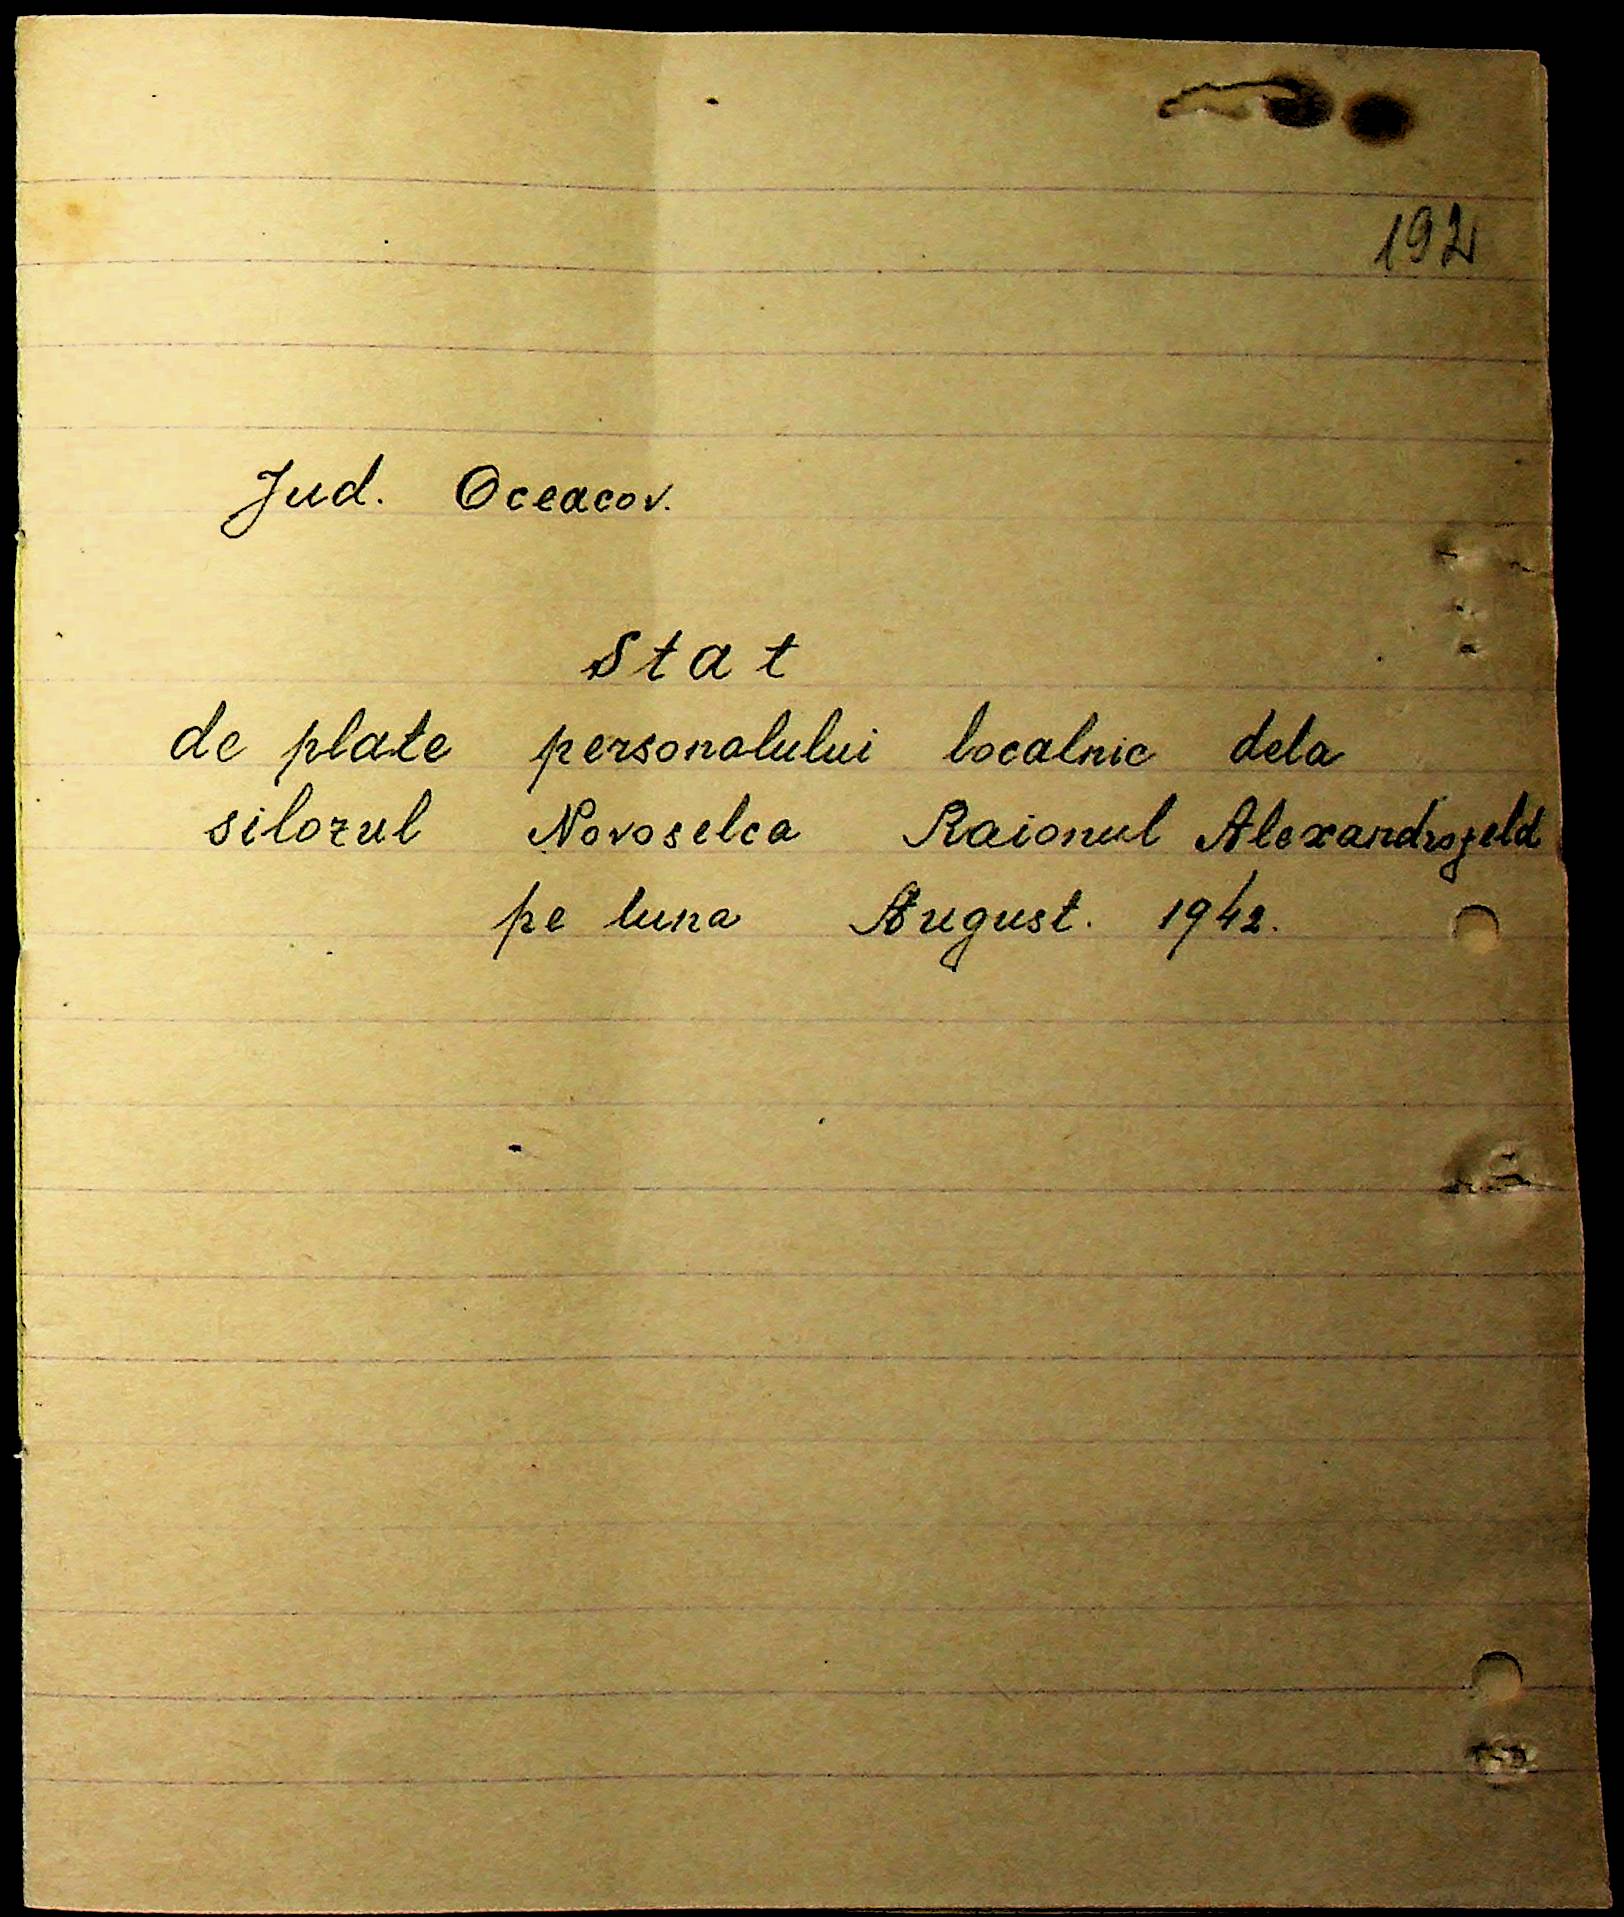 192
Jud. Oceacov.
Stat
de plate personalului localnic dela
silozul Novoselca Raionul Alexandrogeld
pe luna August. 1942.